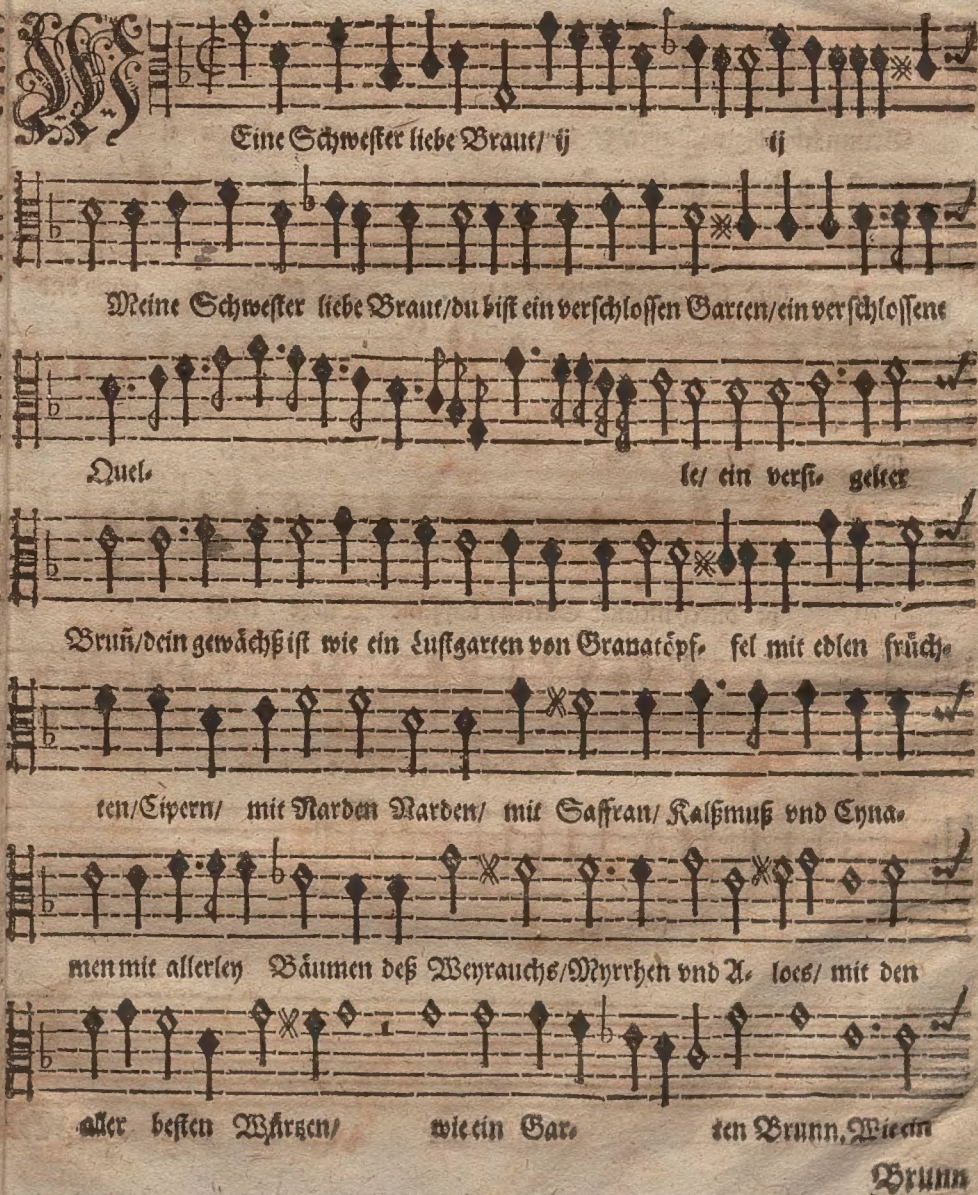 MEine Schwester liebe Braut/ ij ij
Meine Schwester liebe Braut/du bist ein verschlossen Garten/ein verschlossene
Quel- le/ ein versi- gelter
Bruñ/dein gewächß ist wie ein Lustgarten von Granatöpf- fel mit edlen früch-
ten/Cipern/ mit Narden Narden/ mit Saffran/ Kalßmuß vnd Cyna-
men mit allerley Bäumen deß Weyrauchs/Myrrhen vnd A- loes/ mit den
aller besten Würtzen/ wie ein Gar- ten Brunn, Wie ein
Brunn